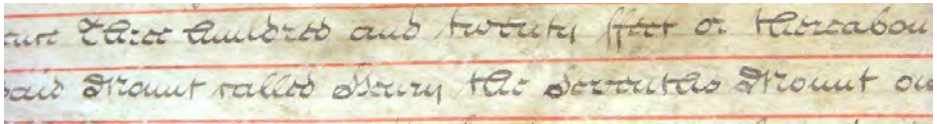 Three hundred and twenty ffeet or thereabou
said Mount called Henry the Sevenths Mount on